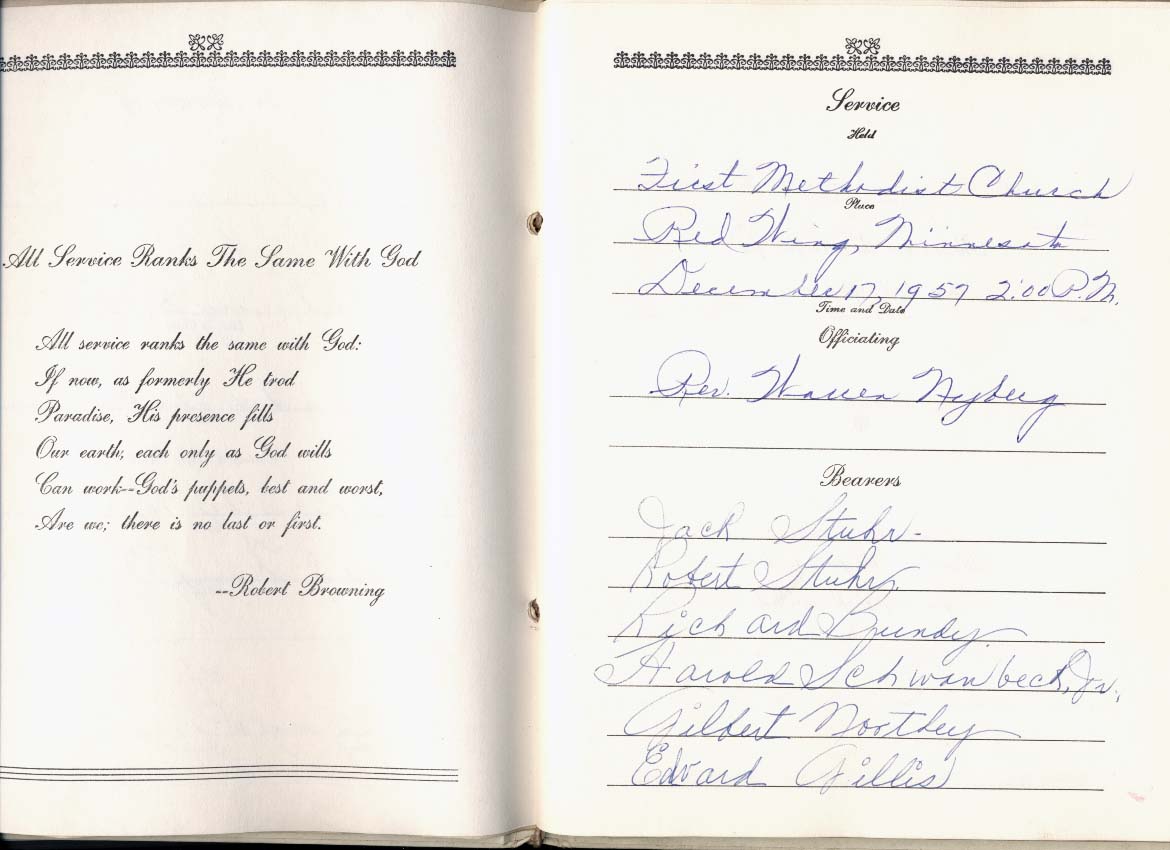 All Service Ranks The Same With God
All service ranks the same with God:
If now, as formerly He trod
Paradise, His presence fills
Our earth; each only as God wills
Can work--God's puppets, best and worst,
Are we; there is no last or first.
--Robert Browning
Service
Held
First Methodist Church
Place
Red Wing, Minnesota
December 17, 1957 2:00 P.M.
Time and Date
Officiating
Rev. Warren Nyberg
Bearers
Jack Stuhr
Robert Stuhr
Richard Bundy
Harold Schwanbeck, Jr.
Gilbert Nootbey
Edward Gillis